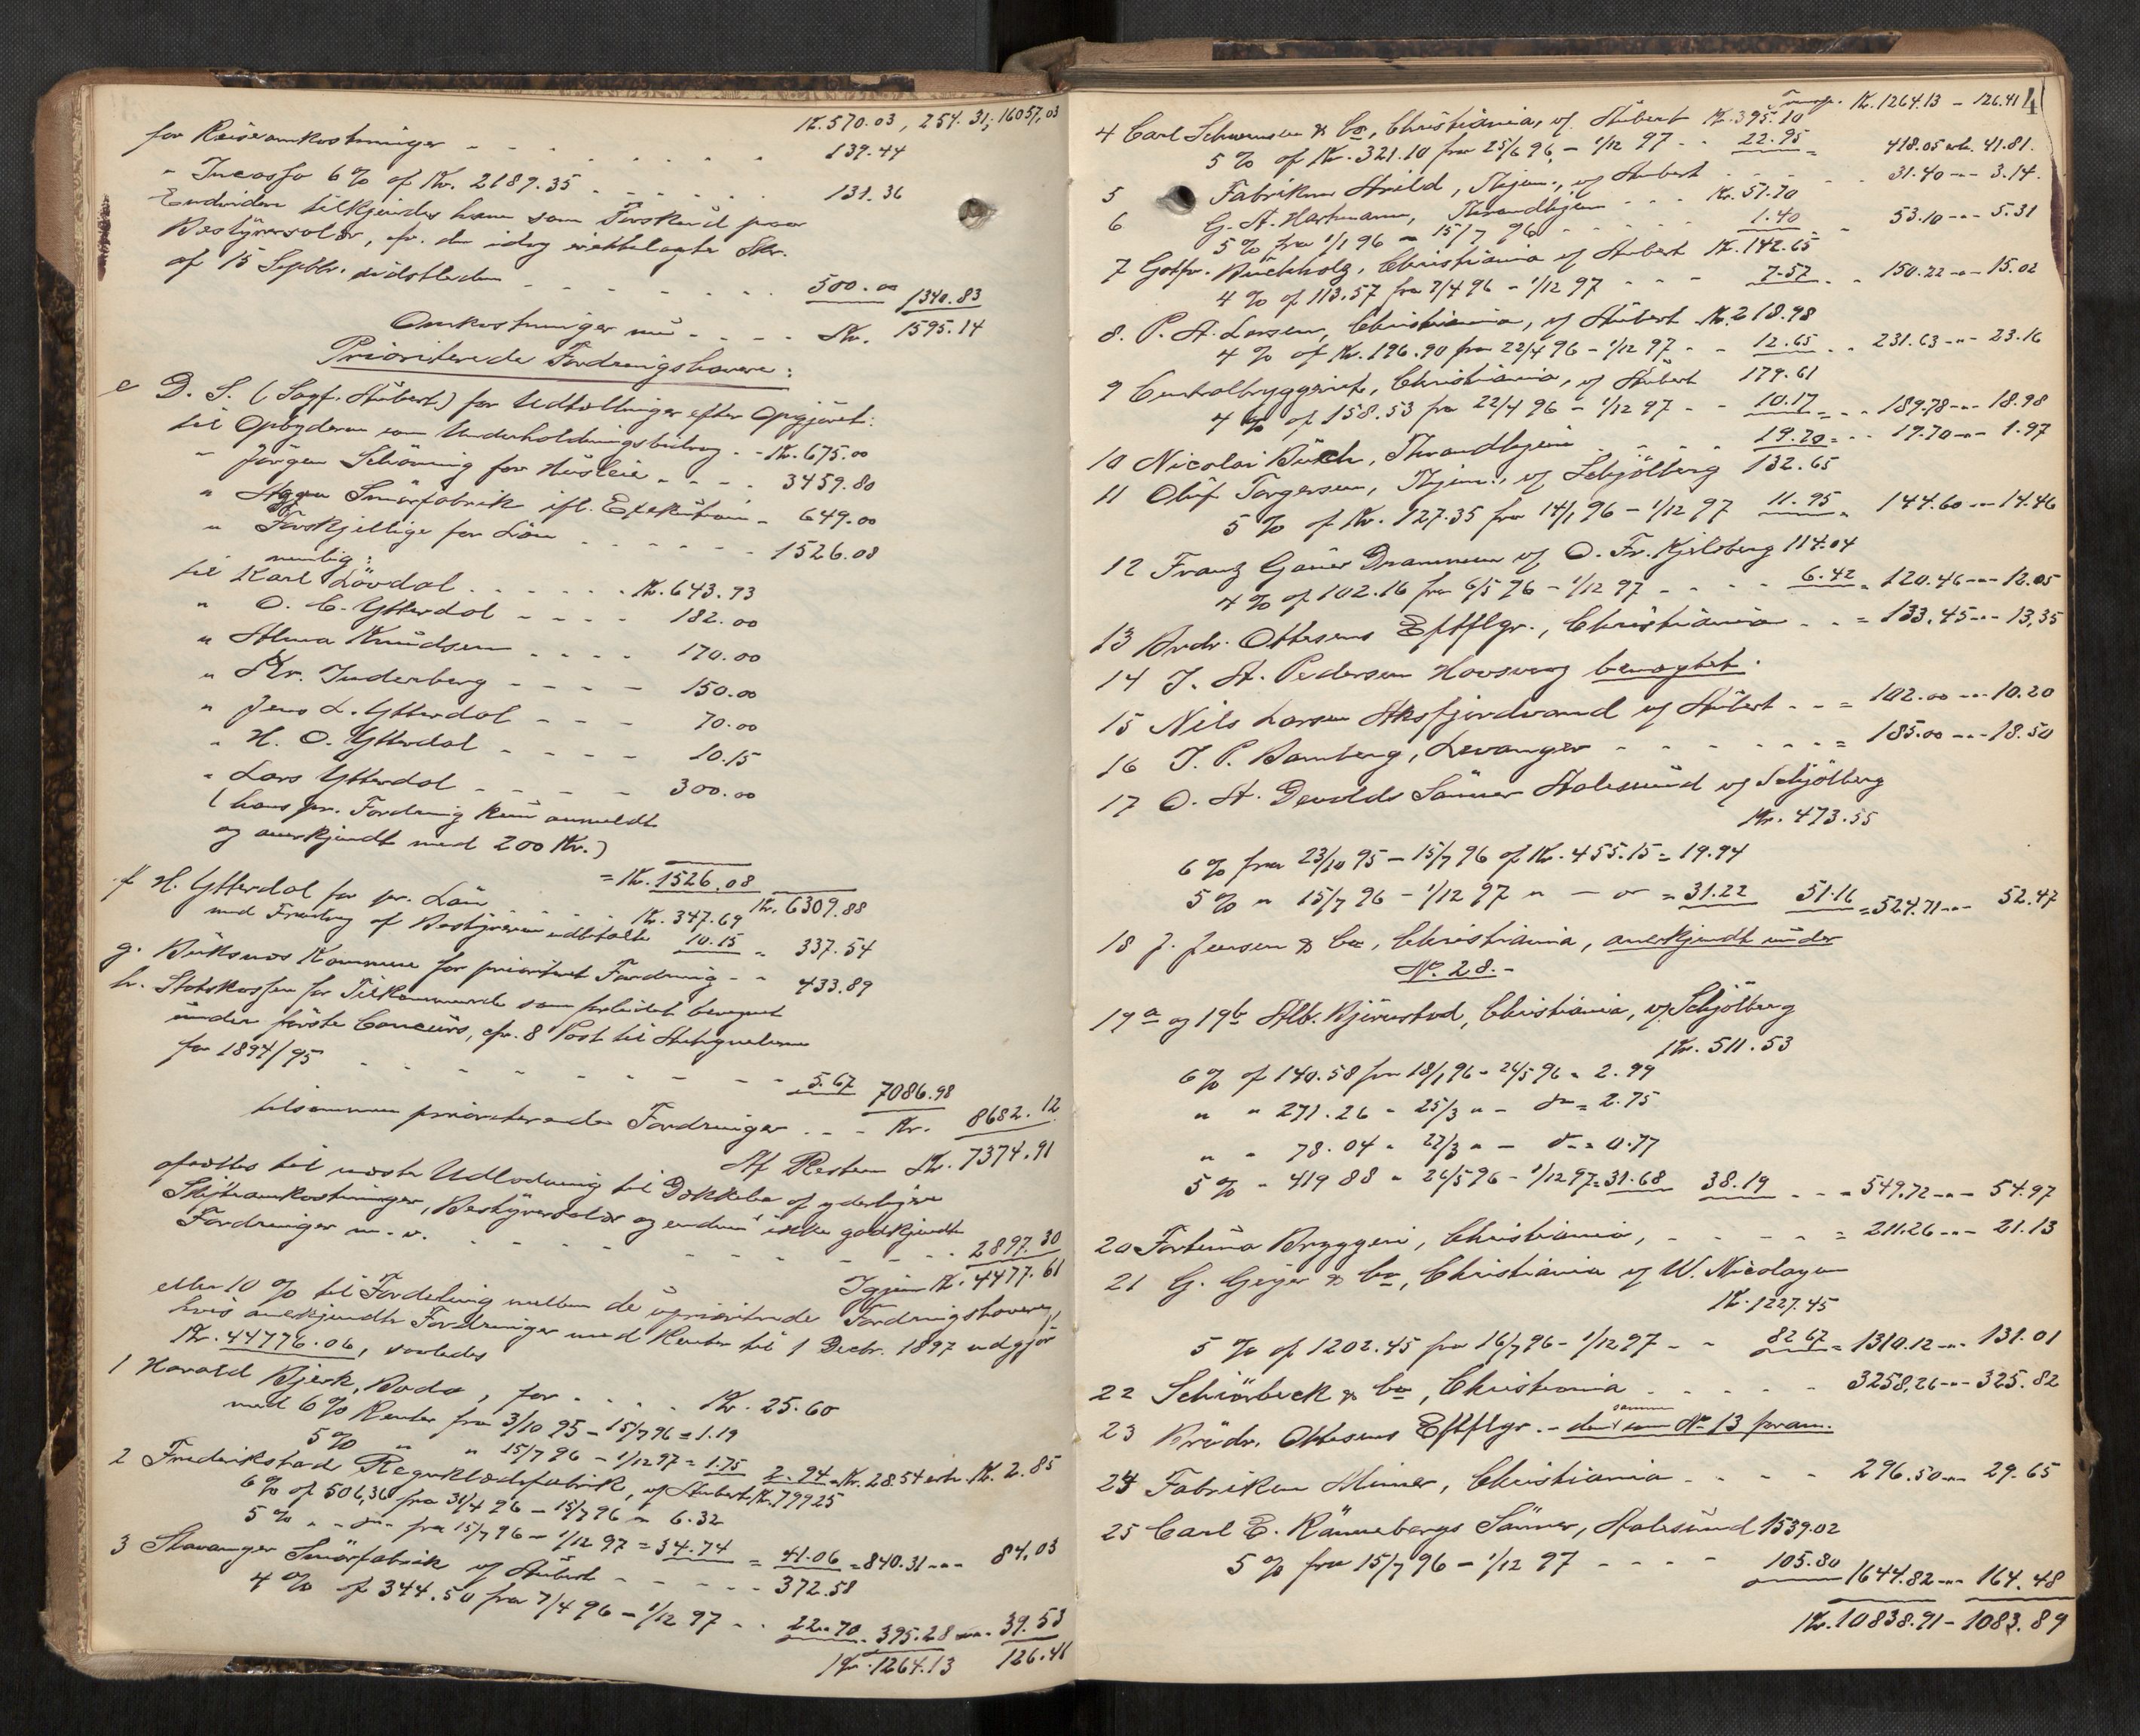 Kr. 570.03, 254.31; 16057,03
for Reiseomkostninger - - - - - - - 139.44
" Incasso 6% af Kr. 2189.35 - - - - - - 131.36
Endvidere tilkjendes ham som Forskud paa
Bestyrersalær, cfr. den idag irettelagte Skr.
af 15 Septbr. sidstleden - - - - - - - 500.00 1340.83
Omkostninger nu - - - - Kr. 1595.14
Prioriterede Fordringshavere:
e D. S. (Sagf. Stübert) for Udtællinger efter Opgjøret:
til Opbyderen som Underholdningsbidrag - - Kr. 675.00
" Jørgen Schönning for Husleie - - - - 3459.80
" Aggra Smörfabrik ifl. Exekution - 649.00
" Forskjellige for Lön - - - - - - 1526.08
nemlig:
til Karl Lövdal - - - - - - Kr. 643.93
" O. C. Ytterdal - - - - 182.00
" Alma Knudsen - - - - 170.00
" Kr. Inderberg - - - - 150.00
" Jens L. Ytterdal - - - 70.00
" H. O. Ytterdal - - - - 10.15
" Lars Ytterdal - - - - - 300.00
(hans pr. Fordring kun anmeldt
og anerkjendt med 200 Kr.)
= Kr. 1526.08 Kr. 6309.88
f H. Ytterdal for pr. Lön - - Kr. 347.69
med Fradrag af Bestyreren udbetalte 10.15 = 337.54
g. Buksnes Kommune for prioritert Fordring - - 433.89
h. Statskassen for Tilkommende som forlidet beregnet
under første Concurs, cfr. 8 Post til Antegnelserne
for 1894/95 - - - - - - - - - 5.67 7086.98
tilsammen prioriterede Fordringer - - - Kr. 8682.12
Af Resten Kr. 7374.91
afsættes til næste Udlodning til Dækkelse af yderligere
Skifteomkostninger, Bestyrersalær og endnu ikke godkjendte
Fordringer m. v. - - - - - - - - - 2897.30
Igjen Kr. 4477.61
eller 10% til Fordeling mellem de uprioriterede Fordringshavere,
hvis anerkjendte Fordringer med Renter til 1 Decbr. 1897 udgjør
Kr. 44776.06, saaledes
1 Harald Bjerk, Bodø, for - - - - Kr. 25.60
med 6% Renter fra 3/10 95 - 15/7 96 = 1.19
5% " " 15/7 96 - 1/12 97 = 1.75 2.94 = Kr. 28.54 erh. Kr. 2.85
2 Frederikstad Regnklædefabrik, v/ Stubert Kr. 799.25
6% af 506,36 fra 31/4 96 - 15/7 96 = 6.32
5% " - do - fra 15/7 96 - 1/12 97 = 34.74 = 41.06 = 840.31 -"- 84,03
3 Stavanger Smörfabrik v/ Stübert - - - - - 372.58
4% af 344.50 fra 7/4 96 - 1/12 97 - - 22.70 = 395.28 -"- 39.53
Kr. 1264.13 126.41
Transp. Kr. 1264.13 - 126.41
4
4 Carl Schwensen & Co, Christiania, v/ Stübert Kr. 395.10
5% af Kr. 321.10 fra 25/6 96 - 1/12 97 - - 22.95 = 418.05 erh. 41.81.
5 Fabriken Arild, Thjem., v/ Stubert - - - - - 31.40 -"- 3.14.
6 G. A. Hartmann, Throndhjem - - - Kr. 51.70
5% fra 1/1 96 - 15/7 96 - - - - - 1.40 - 53.10 -"- 5.31
7 Gotfr. Buchholz, Christiania v/ Stubert Kr. 142.65
4% af 113.57 fra 7/4 96 - 1/12 97 - - - 7.57 - - 150.22 -"- 15.02
8. P. A. Larsen, Christiania, v/ Stubert Kr. 218.98
4% af Kr. 196.90 fra 22/4 96 - 1/12 97 - - 12.65 - - 231.63 -"- 23.16
9 Centralbryggeriet, Christiania, v/ Stubert 179.61
4% af 158.53 fra 22/4 96 - 1/12 97 - - 10.17 = - - 189.78 -"- 18.98
10 Nicolai Buch, Throndhjem - - - - 19.70 = - - 19.70 -"- 1.97
11 Oluf Torgersen, Thjem., v/ Schjölberg 132.65
5% af Kr. 127.35 fra 14/1 96 - 1/12 97 11.95 = 144.60 -"- 14.46
12 Franz Gaver Drammen v/ O. Fr. Kjelsberg 114.04
4% af 102.16 fra 6/5 96 - 1/12 97 - - - - 6.42 = 120.46 -"- 12.05
13 Brdr. Ottesens Eftflgr., Christiania - - = 133.45 -"- 13,35
14 J. A. Pedersen Hovsvaag benegtet.
15 Nils Larsen Aksfjordvand v/ Stübert - - = 102.00 -"- 10.20
16 J. P. Bamberg, Levanger - - - - - - = 185.00 -"- 18.50
17 O. A. Devolds Sönner Aalesund v/ Schjölberg
Kr. 473.55
6% fra 23/10 95 - 15/7 96 af Kr. 455.15 = 19.94
5% " 15/7 96 - 1/12 97 " - " = 31.22 51.16 = 524.71 -"- 52.47
18 J. Jensen & Co, Christiania, anerkjendt under
No. 28. -
19 a og 19 b Alb. Björnstad, Christiania, v/ Schjölberg
Kr. 511.53
6% af 140.58 fra 18/1 96 - 26/5 96 = 2.99
" " 271.26 " 25/3 " - do = 2.75
" " 78.04 " 27/3 " - do = 0.77
5% " 419 88 " 26/5 96 - 1/12 97 = 31.68 38.19 - - = 549.72 -"- 54.97
20 Fortuna Bryggeri, Christiania, - - - - = 211.26 -"- 21.13
21 G. Geijer & Co, Christiania v/ W. Nicolaysen
Kr. 1227.45
5% af 1202.45 fra 16/7 96 - 1/12 97 - - 82 67 = 1310.12 -"- 131.01
22 Schiörbeck & Co, Christiania - - - - - 3258,26 -"- 325.82
23 Brödr. Ottesens Eftflgr. - den samme som No 13 foran.
24 Fabriken Mimer, Christiania - - - - 296.50 -"- 29.65
25 Carl E. Rönnebergs Sönner, Aalesund 1539.02
5% fra 15/7 96 - 1/12 97 - - - - 105.80 1644.82 -"- 164.48
Kr. 10838.91 - 1083.89